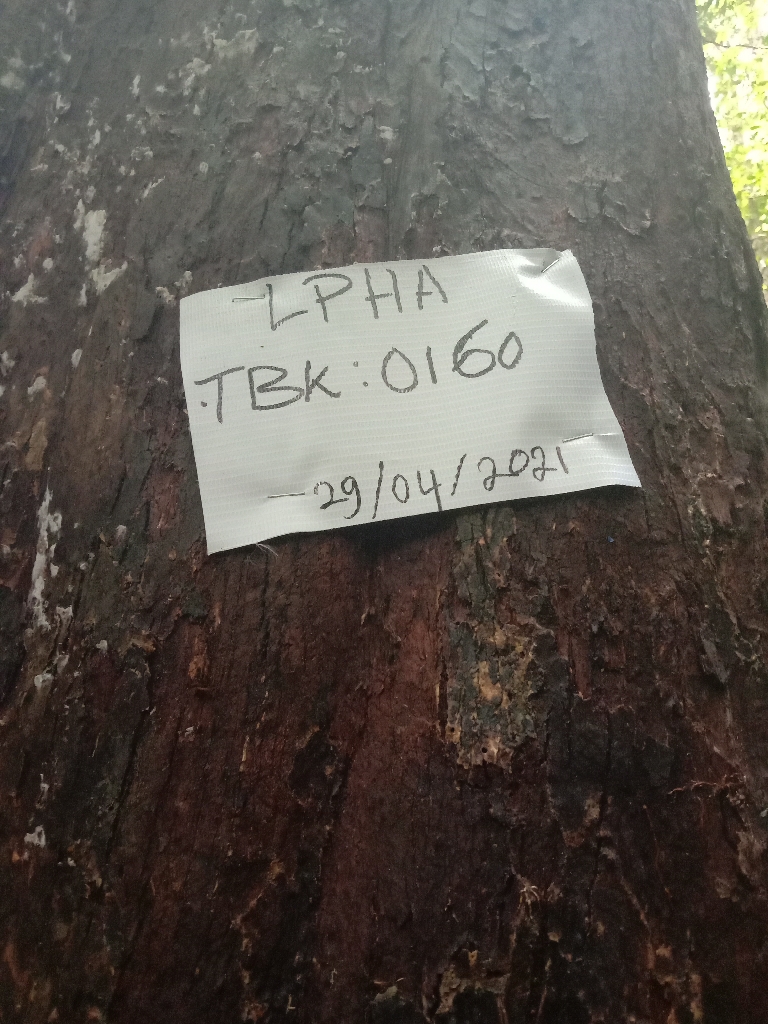 LPHA
TBK:0160
29/04/2021